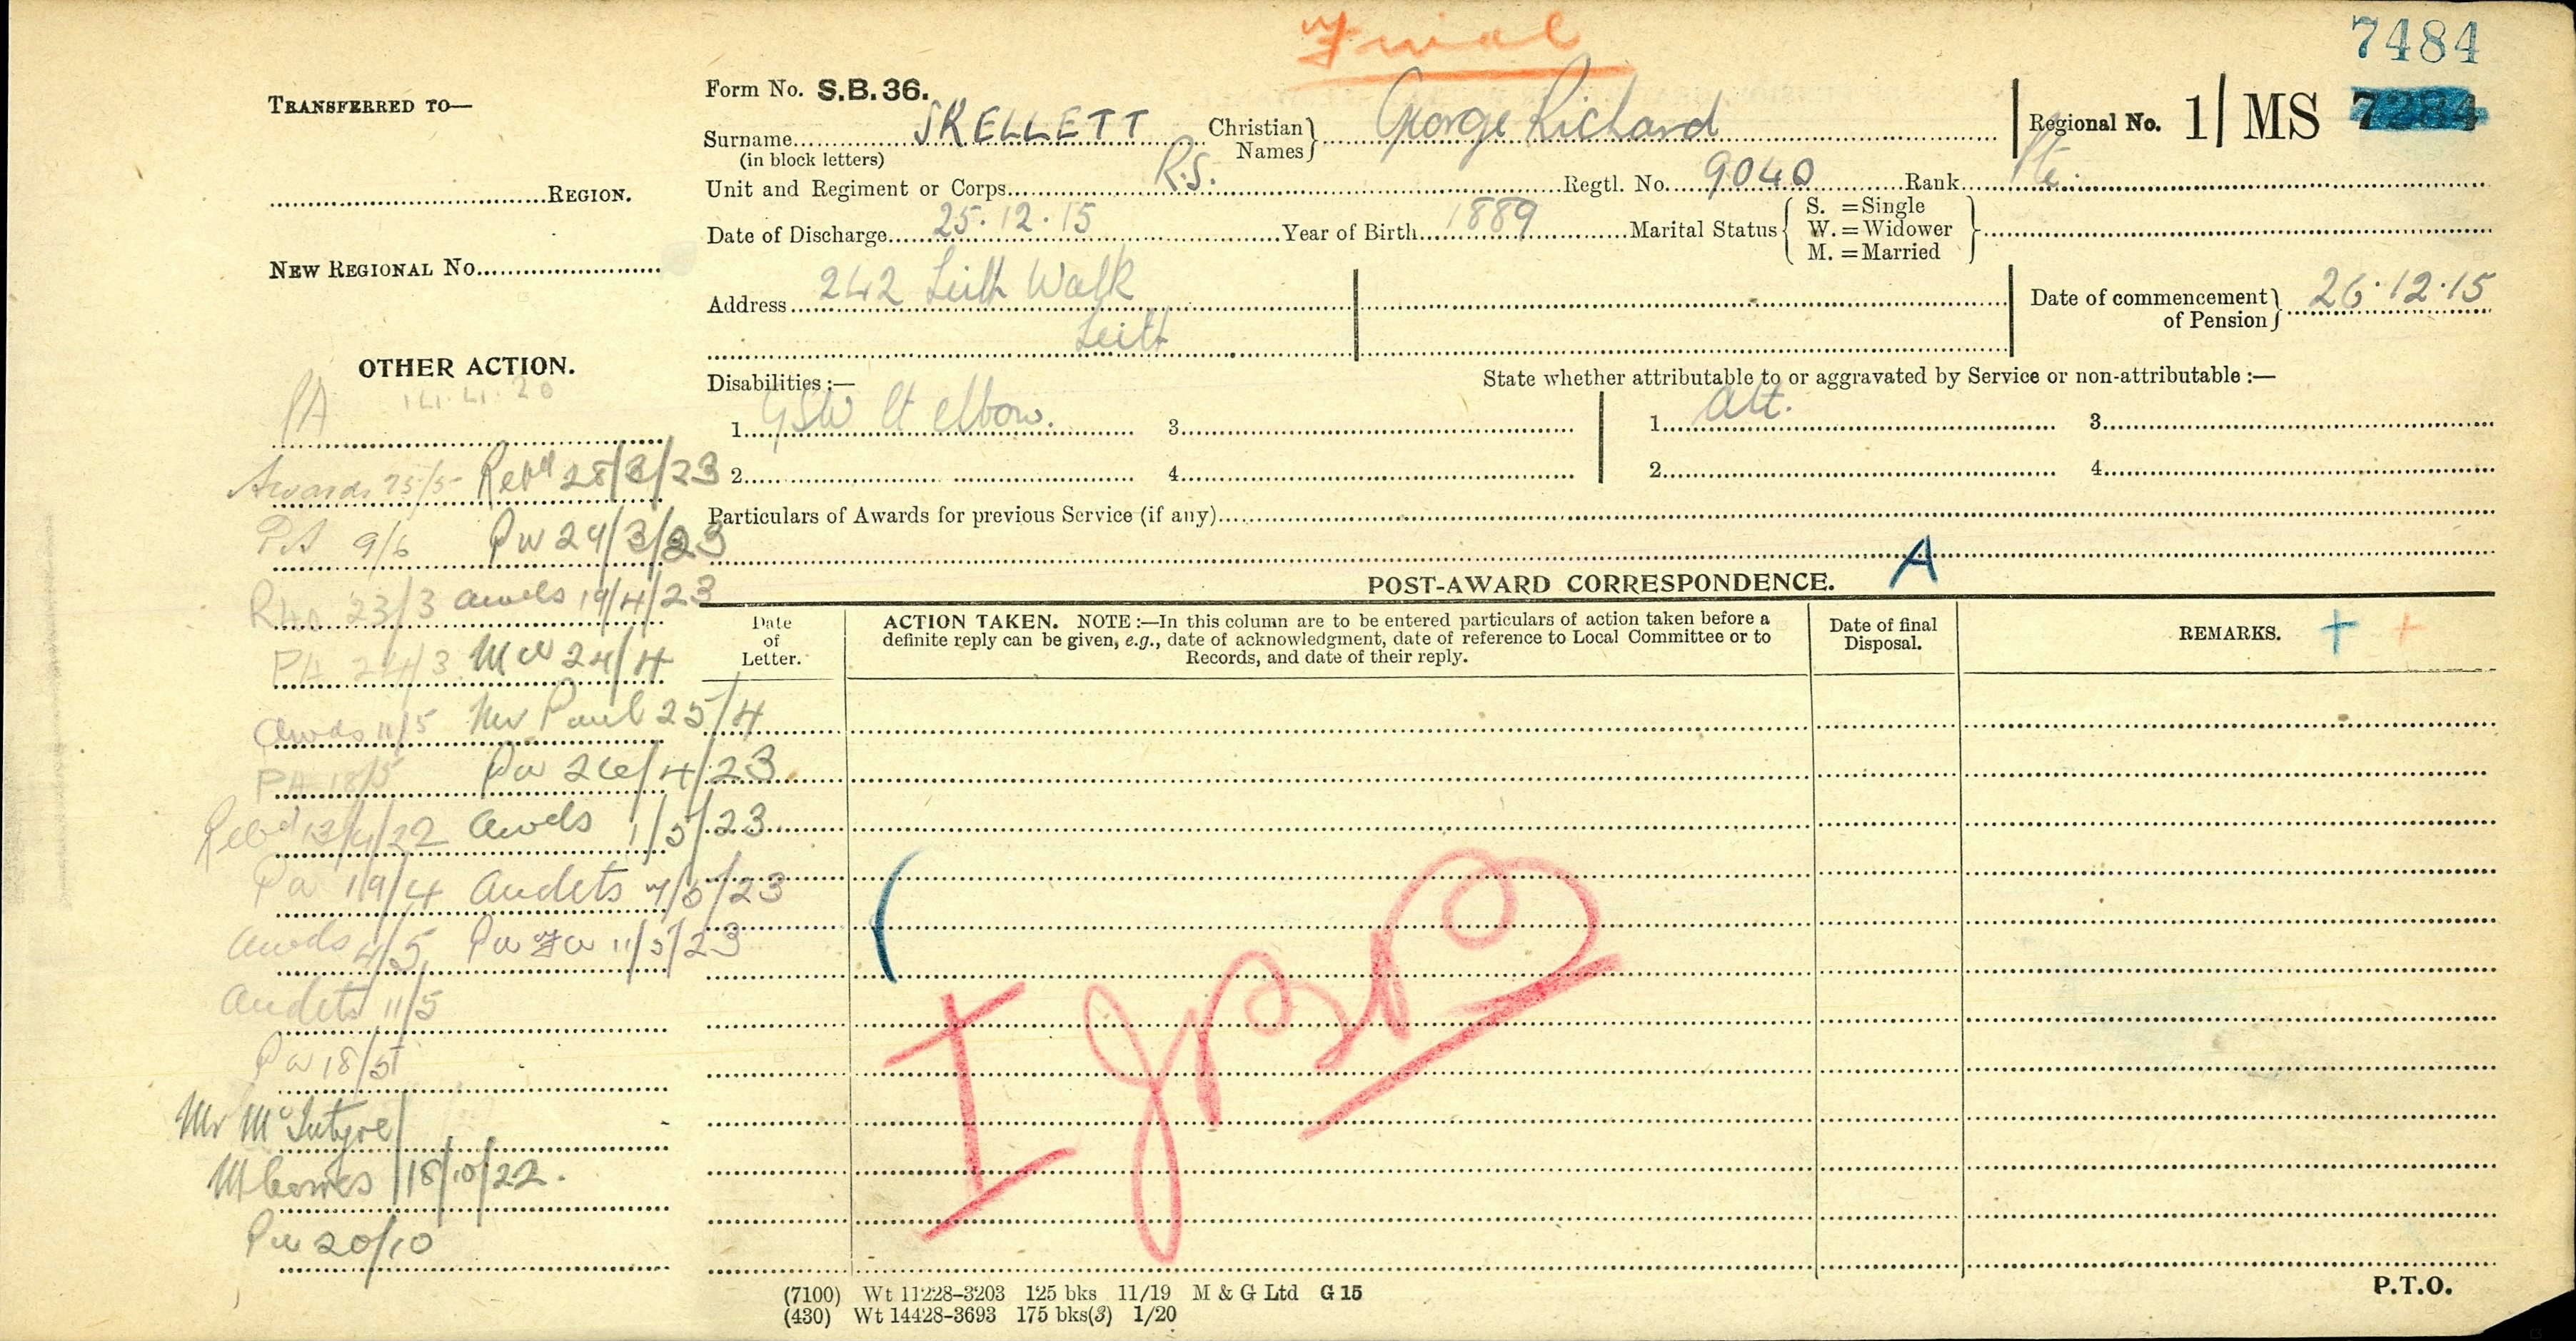 Final
7484
Form No. S.B. 36.
Surname SKELLETT Christian Names George Richard Regional No. 1/MS 7284
(in block letters)
Unit and Regiment or Corps R.S. Regtl. No. 9040 Rank Pte.
Date of Discharge 25.12.15 Year of Birth 1889 Marital Status S. = Single W. = Widower M. = Married
Address 242 Leith Walk Date of commencement of Pension 26.12.15
Leith
Disabilities :— State whether attributable to or aggravated by Service or non-attributable :—
1. GSW Lt elbow. 3. 1. Att. 3.
2. 4. 2. 4.
Particulars of Awards for previous Service (if any)
A
POST-AWARD CORRESPONDENCE.
Date of Letter.
ACTION TAKEN. NOTE :—In this column are to be entered particulars of action taken before a
definite reply can be given, e.g., date of acknowledgment, date of reference to Local Committee or to
Records, and date of their reply.
Date of final Disposal.
REMARKS. + +
TRANSFERRED TO—
REGION.
NEW REGIONAL No.
OTHER ACTION.
PA 14.4.20
Awards 25/5 28/3/23
PA 9/6 29/3/23
23/3 Awds 19/4/23
PA 24/3 24/4
Awds 11/5 Mr Paul 25/4
PA 18/5 Pa 26/4/23
13/4/22 Awds 1/5/23
Pa 19/4 Audets 7/5/23
Awds 4/5 Pa 11/5/23
Audets 11/5
Pa 18/5
Mr McIntyre
18/10/22.
Pa 20/10
(7100) Wt 11228-3203 125 bks 11/19 M & G Ltd G 15
(430) Wt 14428-3693 175 bks(3) 1/20
P.T.O.